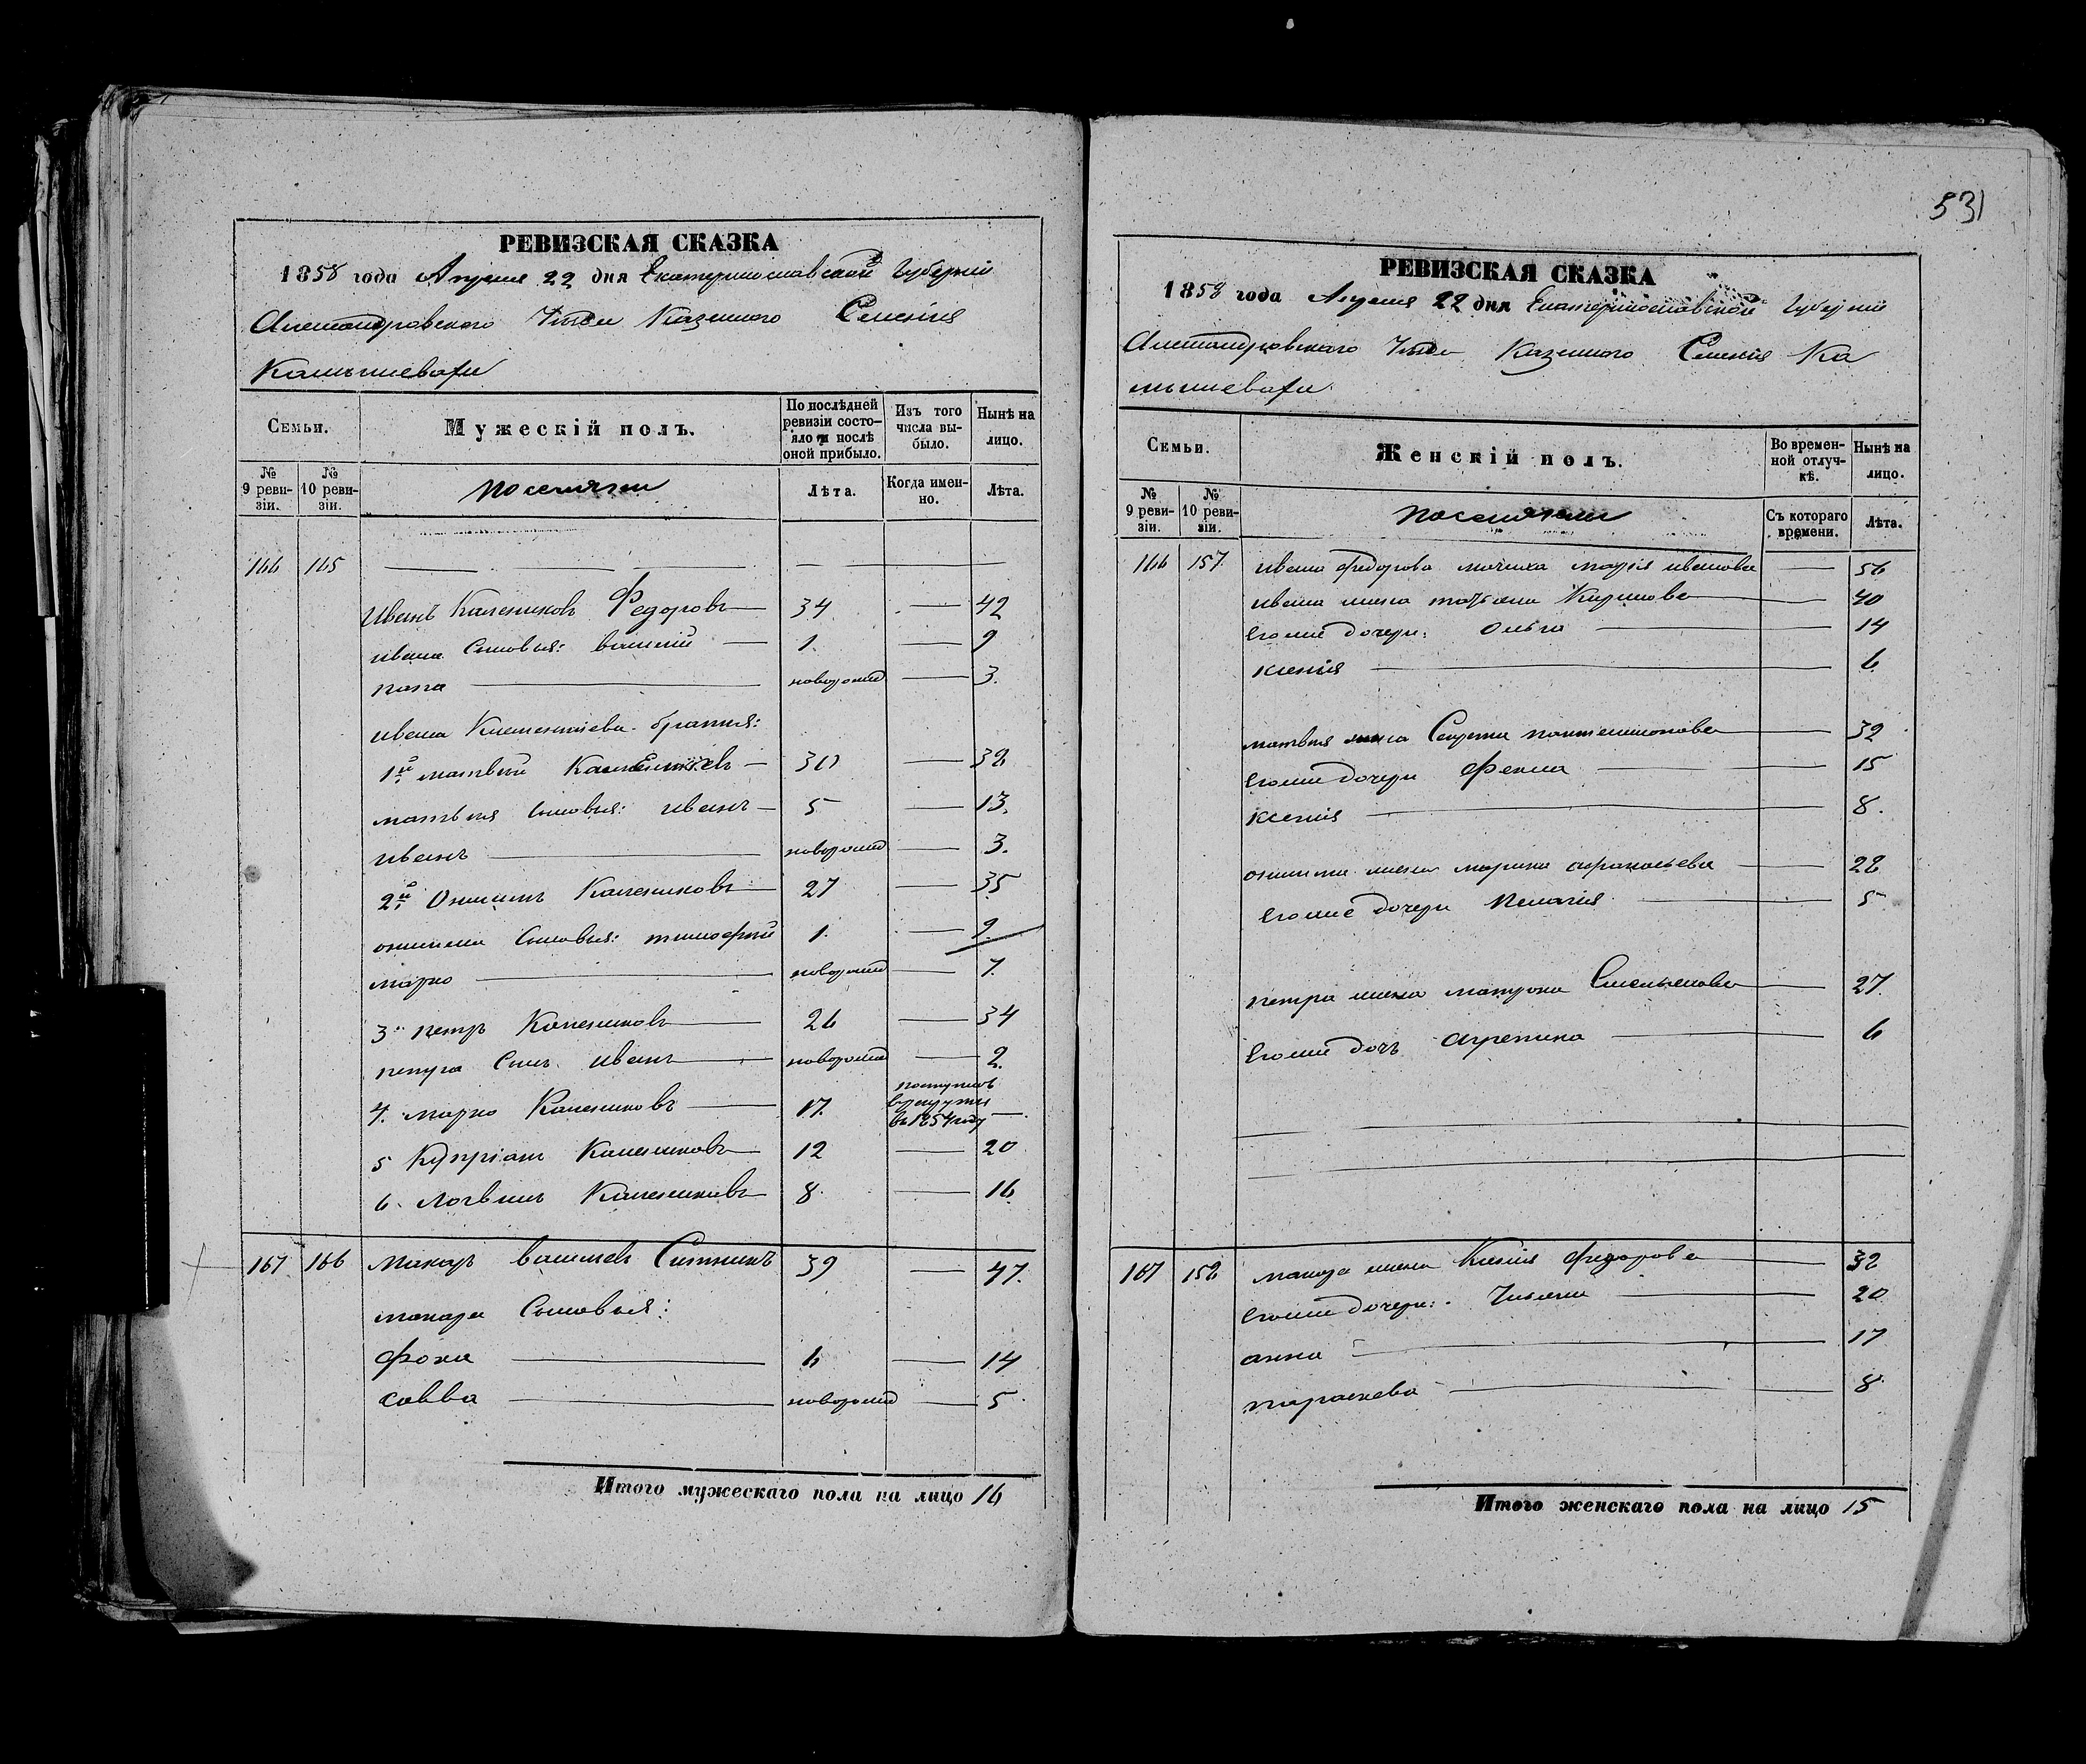 РЕВИЗСКАЯ СКАЗКА
1858 года Апреля 22 дня Екатеринославской Губерніи
Александровского Уезда Казенного Селенія
Камышевахи
Семьи.
Мужескій полъ.
По послѣдней ревизіи состояло и послѣ оной прибыло.
Изъ того числа выбыло.
Нынѣ на лицо.
№ 9 ревизіи.
№ 10 ревизіи.
поселяне
Лѣта.
Когда именно.
Лѣта.
166 165
Иванъ Калениковъ Федоровъ 34 — 42
ивана Сыновья: василій 1. — 9
новорожд — 3.
ивана братья:
1й матвей 30 — 38
матвея Сыновья: иванъ 5 — 13.
иванъ новорожд — 3.
2й Онисимъ Калениковъ 27 — 35
онисима Сыновья: тимофей 1. — 9.
марко новорожд — 7.
3й петръ Калениковъ 26 — 34
петра Сынъ иванъ новорожд — 2.
4. марко Калениковъ 17. поступилъ в рекруты въ 1854 году —
5 Купріанъ Калениковъ 12 — 20
6. логвинъ Калениковъ 8. — 16
167. 166 макаръ васильевъ Ситникъ 39 — 47.
макара Сыновья:
фока 6 — 14
савва новорожд — 5
Итого мужескаго пола на лицо 16
531
РЕВИЗСКАЯ СКАЗКА
1858 года Апреля 22 дня Екатеринославской Губерніи
Александровского Уезда Казенного Селенія Ка
мышевахи
Семьи.
Женскій полъ.
Во временной отлучкѣ.
Нынѣ на лицо.
№ 9 ревизіи.
№ 10 ревизіи.
поселяне
Съ котораго времени.
Лѣта.
166 157. ивана Федорова мачиха марія иванова — 56
ивана жена татьяна Кирилова — 40
Егоже дочери: Ольга — 14
ксенія — 6.
матвея жена пантелимонова — 32
Егоже дочери Фекла — 15
ксенія — 8.
онисима жена марина афанасьева — 28
Егоже дочери Пелагия — 5
петра жена матрона Емельянова — 27.
Егоже дочь агрепина — 6
167 158 макара жена Ксенія федорова — 38
Егоже дочери: Ульяна — 20
анна — 17
параскева — 8
Итого женскаго пола на лицо 15